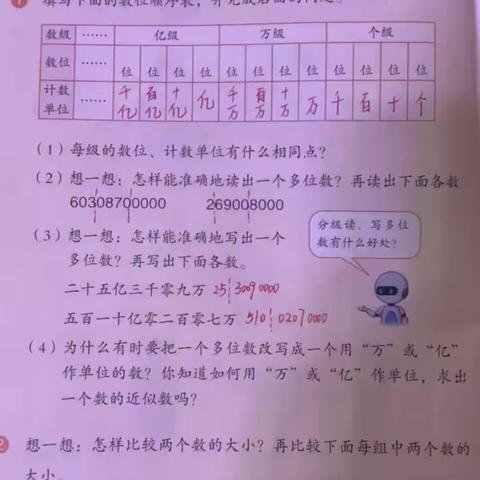 1 填写下面的数位顺序表，并完成后面的问题。
数级 …… 亿级 万级 个级
数位 …… 位 位 位 位 位 位 位 位 位 位 位 位
计数单位 …… 千亿 百亿 十亿 亿 千万 百万 十万 万 千 百 十 个
（1）每级的数位、计数单位有什么相同点？
（2）想一想：怎样能准确地读出一个多位数？再读出下面各数
60308700000 269008000
（3）想一想：怎样能准确地写出一个
多位数？再写出下面各数。
分级读、写多位
数有什么好处？
二十五亿三千零九万 25 3009 0000
五百一十亿零二百零七万 510 0207 0000
（4）为什么有时要把一个多位数改写成一个用“万”或“亿”
作单位的数？你知道如何用“万”或“亿”作单位，求出
一个数的近似数吗？
2 想一想：怎样比较两个数的大小？再比较下面每组中两个数的
大小。